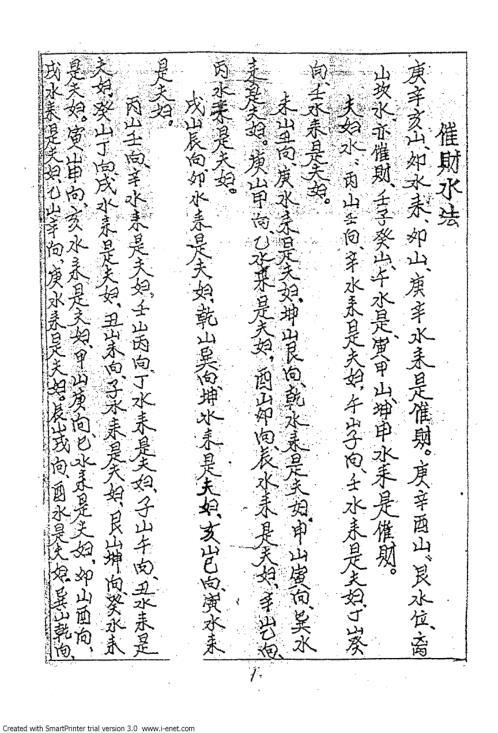 催財水法
庚辛亥山、卯水耒、卯山、庚辛水耒是催財。庚辛酉山、艮水位、离
山坎水、亦催財、壬子癸山、午水是、寅甲山、坤申水耒是催財。
夫妇水、丙山壬向、辛水耒是夫妇、午山子向、壬水耒是夫妇、丁山癸
向、壬水耒是夫妇。
未山丑向、庚水耒是夫妇、坤山艮向、乾水耒是夫妇、申山寅向、巽水
耒是夫妇。庚山甲向、乙水耒是夫妇、酉山卯向、辰水耒是夫妇、辛山乙向、
丙水耒是夫妇。
戌山辰向、卯水耒是夫妇、乾山巽向、坤水耒是夫妇、亥山巳向、寅水耒
是夫妇。
丙山壬向、辛水耒是夫妇、壬山丙向、丁水耒是夫妇、子山午向、丑水耒是
夫妇、癸山丁向、戌水耒是夫妇、丑山未向、子水耒是夫妇、艮山坤向、癸水耒
是夫妇、寅山申向、亥水耒是夫妇、甲山庚向、巳水耒是夫妇、卯山酉向、
戌水耒是夫妇、乙山辛向、庚水耒是夫妇。辰山戌向、酉水是夫妇、巽山乾向、
1.
Created with SmartPrinter trial version 3.0 www.i-enet.com